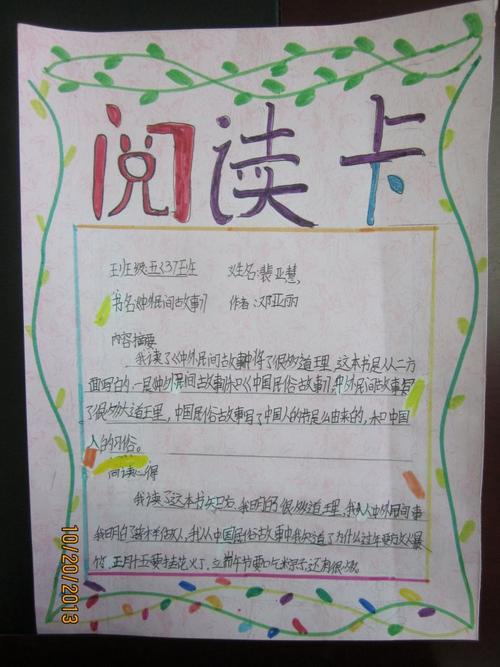 阅读卡
班级五(3)班 姓名:裴亚慧
书名《中外民间故事》 作者:邓亚丽
内容摘要
我读了《中外民间故事》中得了很多道理,这本书是从二方
面写的,一是《中外民间故事》和《中国民俗故事》,中外民间故事写
了很多大道理,中国民俗故事写了中国人的节是么由来的,和中国
人的习俗。
阅读心得
我读了这本书知后,我明白很多道理,我从中外民间事
我明白了善有善人,我从中国民俗故事中我知道了为什么过年要放火暴
竹,正月十五要去花火丁,立端午节要吃米宗子还有很多。
10/20/2013